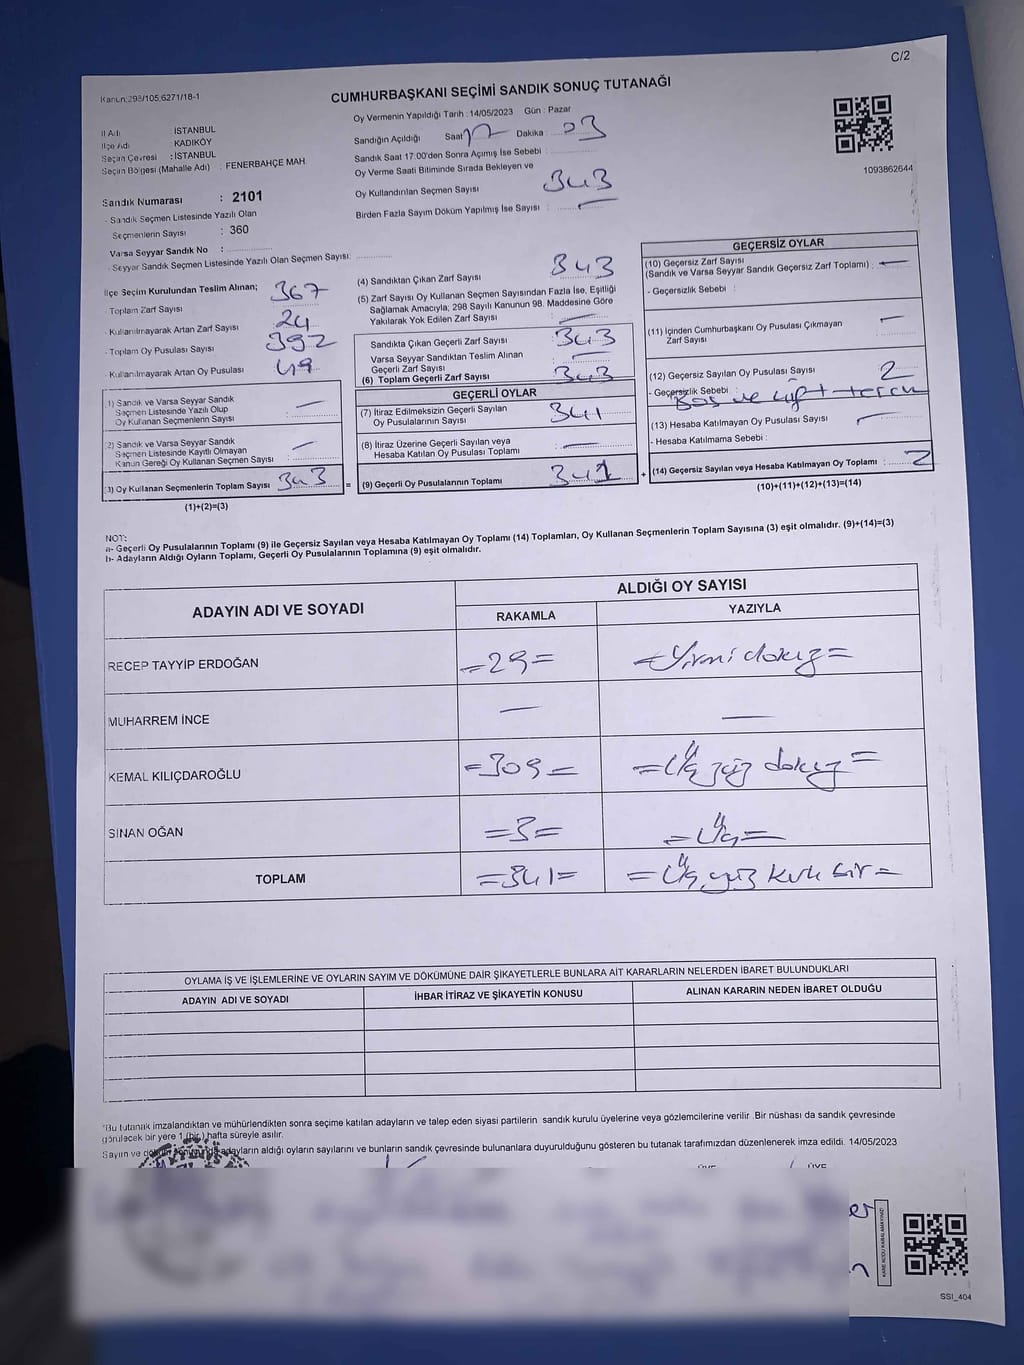 C/2
Kanun:298/105,6271/18-1
CUMHURBAŞKANI SEÇİMİ SANDIK SONUÇ TUTANAĞI
İl Adı : İSTANBUL
İlçe Adı : KADIKÖY
Seçim Çevresi : İSTANBUL
Seçim Bölgesi (Mahalle Adı) : FENERBAHÇE MAH.
Oy Vermenin Yapıldığı Tarih :14/05/2023 Gün : Pazar
Sandığın Açıldığı Saat 17 Dakika : 03
Sandık Saat 17:00'den Sonra Açılmış İse Sebebi :
Oy Verme Saati Bitiminde Sırada Bekleyen ve
Oy Kullandırılan Seçmen Sayısı 343
Birden Fazla Sayım Döküm Yapılmış İse Sayısı : —
1093862644
Sandık Numarası : 2101
- Sandık Seçmen Listesinde Yazılı Olan
Seçmenlerin Sayısı : 360
Varsa Seyyar Sandık No :
- Seyyar Sandık Seçmen Listesinde Yazılı Olan Seçmen Sayısı:
İlçe Seçim Kurulundan Teslim Alınan;
- Toplam Zarf Sayısı 367
- Kullanılmayarak Artan Zarf Sayısı 24
- Toplam Oy Pusulası Sayısı 392
- Kullanılmayarak Artan Oy Pusulası 49
1) Sandık ve Varsa Seyyar Sandık
Seçmen Listesinde Yazılı Olup
Oy Kullanan Seçmenlerin Sayısı : —
2) Sandık ve Varsa Seyyar Sandık
Seçmen Listesinde Kayıtlı Olmayan
Kanun Gereği Oy Kullanan Seçmen Sayısı : —
3) Oy Kullanan Seçmenlerin Toplam Sayısı 343
(1)+(2)=(3)
(4) Sandıktan Çıkan Zarf Sayısı 343
(5) Zarf Sayısı Oy Kullanan Seçmen Sayısından Fazla İse, Eşitliği
Sağlamak Amacıyla; 298 Sayılı Kanunun 98. Maddesine Göre
Yakılarak Yok Edilen Zarf Sayısı : —
Sandıkta Çıkan Geçerli Zarf Sayısı 343
Varsa Seyyar Sandıktan Teslim Alınan
Geçerli Zarf Sayısı : —
(6) Toplam Geçerli Zarf Sayısı 343
GEÇERLİ OYLAR
(7) İtiraz Edilmeksizin Geçerli Sayılan
Oy Pusulalarının Sayısı 341
(8) İtiraz Üzerine Geçerli Sayılan veya
Hesaba Katılan Oy Pusulası Toplamı : —
(9) Geçerli Oy Pusulalarının Toplamı 341
GEÇERSİZ OYLAR
(10) Geçersiz Zarf Sayısı
(Sandık ve Varsa Seyyar Sandık Geçersiz Zarf Toplamı) : —
- Geçersizlik Sebebi :
(11) İçinden Cumhurbaşkanı Oy Pusulası Çıkmayan
Zarf Sayısı —
(12) Geçersiz Sayılan Oy Pusulası Sayısı 2
- Geçersizlik Sebebi : Boş ve çift tercih
(13) Hesaba Katılmayan Oy Pusulası Sayısı —
- Hesaba Katılmama Sebebi :
+ (14) Geçersiz Sayılan veya Hesaba Katılmayan Oy Toplamı : 2
(10)+(11)+(12)+(13)=(14)
NOT:
a- Geçerli Oy Pusulalarının Toplamı (9) ile Geçersiz Sayılan veya Hesaba Katılmayan Oy Toplamı (14) Toplamları, Oy Kullanan Seçmenlerin Toplam Sayısına (3) eşit olmalıdır. (9)+(14)=(3)
b- Adayların Aldığı Oyların Toplamı, Geçerli Oy Pusulalarının Toplamına (9) eşit olmalıdır.
ADAYIN ADI VE SOYADI ALDIĞI OY SAYISI
RAKAMLA YAZIYLA
RECEP TAYYİP ERDOĞAN =29= =Yirmi dokuz=
MUHARREM İNCE — —
KEMAL KILIÇDAROĞLU =309= =Üç yüz dokuz=
SİNAN OĞAN =3= =Üç=
TOPLAM =341= =Üç yüz kırk bir=
OYLAMA İŞ VE İŞLEMLERİNE VE OYLARIN SAYIM VE DÖKÜMÜNE DAİR ŞİKAYETLERLE BUNLARA AİT KARARLARIN NELERDEN İBARET BULUNDUKLARI
ADAYIN ADI VE SOYADI İHBAR İTİRAZ VE ŞİKAYETİN KONUSU ALINAN KARARIN NEDEN İBARET OLDUĞU
*Bu tutanak imzalandıktan ve mühürlendikten sonra seçime katılan adayların ve talep eden siyasi partilerin sandık kurulu üyelerine veya gözlemcilerine verilir. Bir nüshası da sandık çevresinde
görülecek bir yere 1 (bir) hafta süreyle asılır.
Sayım ve döküm sonucunda adayların aldığı oyların sayılarını ve bunların sandık çevresinde bulunanlara duyurulduğunu gösteren bu tutanak tarafımızdan düzenlenerek imza edildi. 14/05/2023
ÜYE ÜYE
KARE KODU KARALAMAYINIZ!
SSI_404